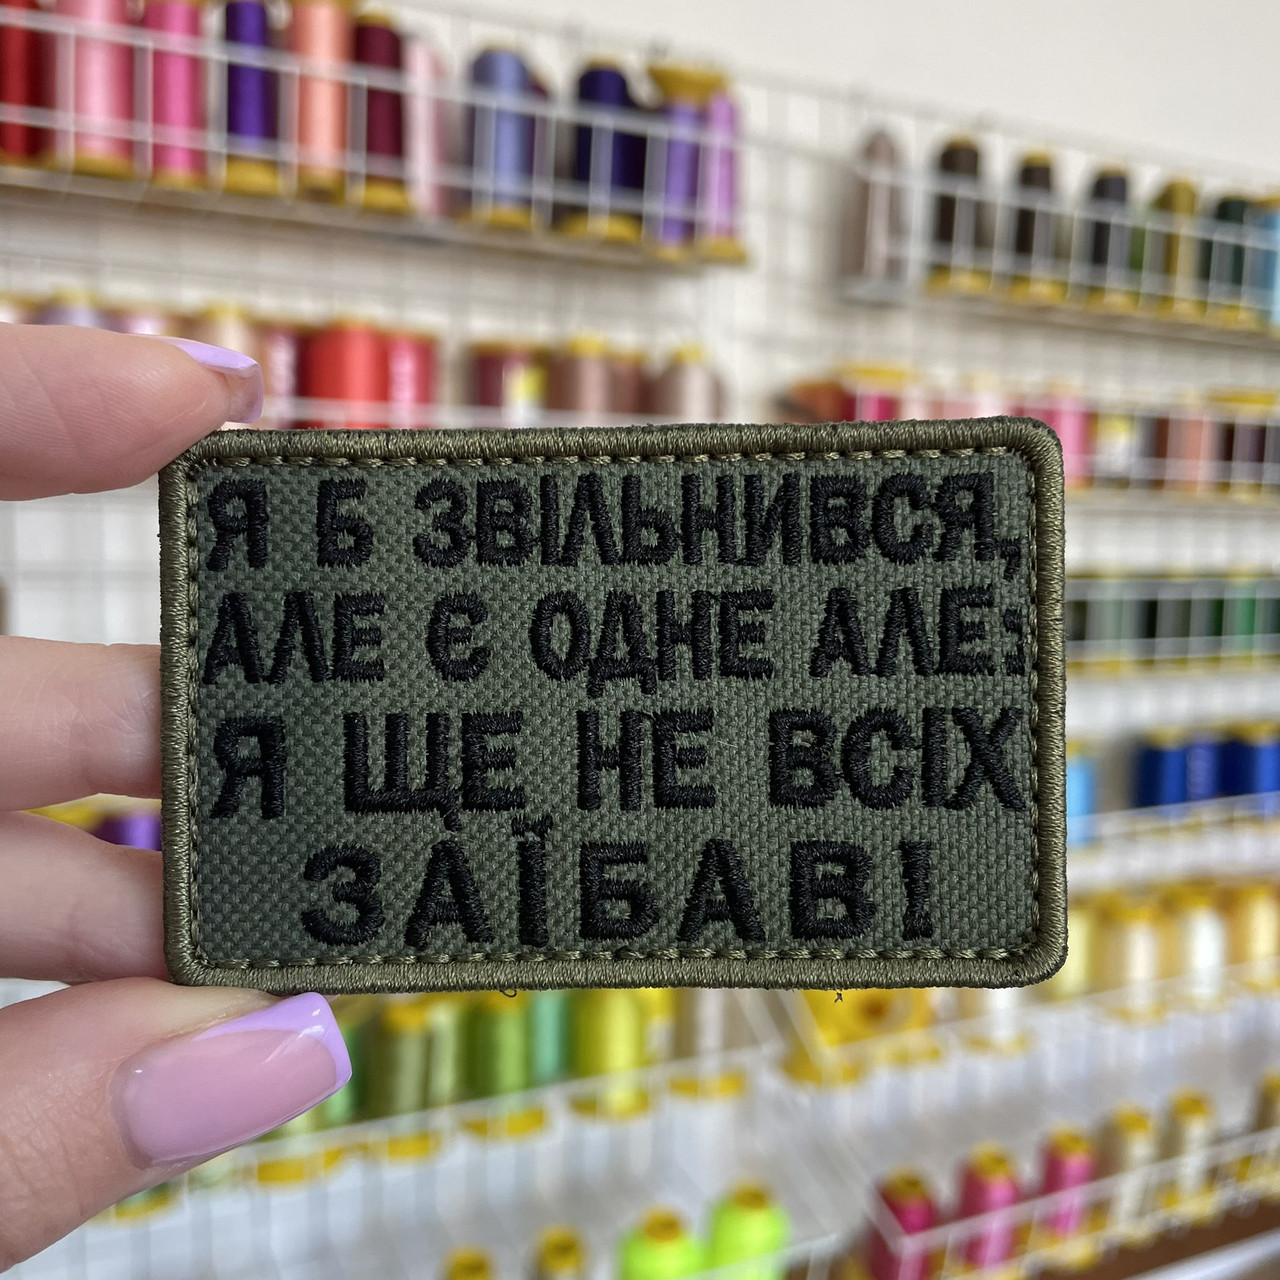 Я Б ЗВІЛЬНИВСЯ,
АЛЕ Є ОДНЕ АЛЕ:
Я ЩЕ НЕ ВСІХ
ЗАЇБАВ!